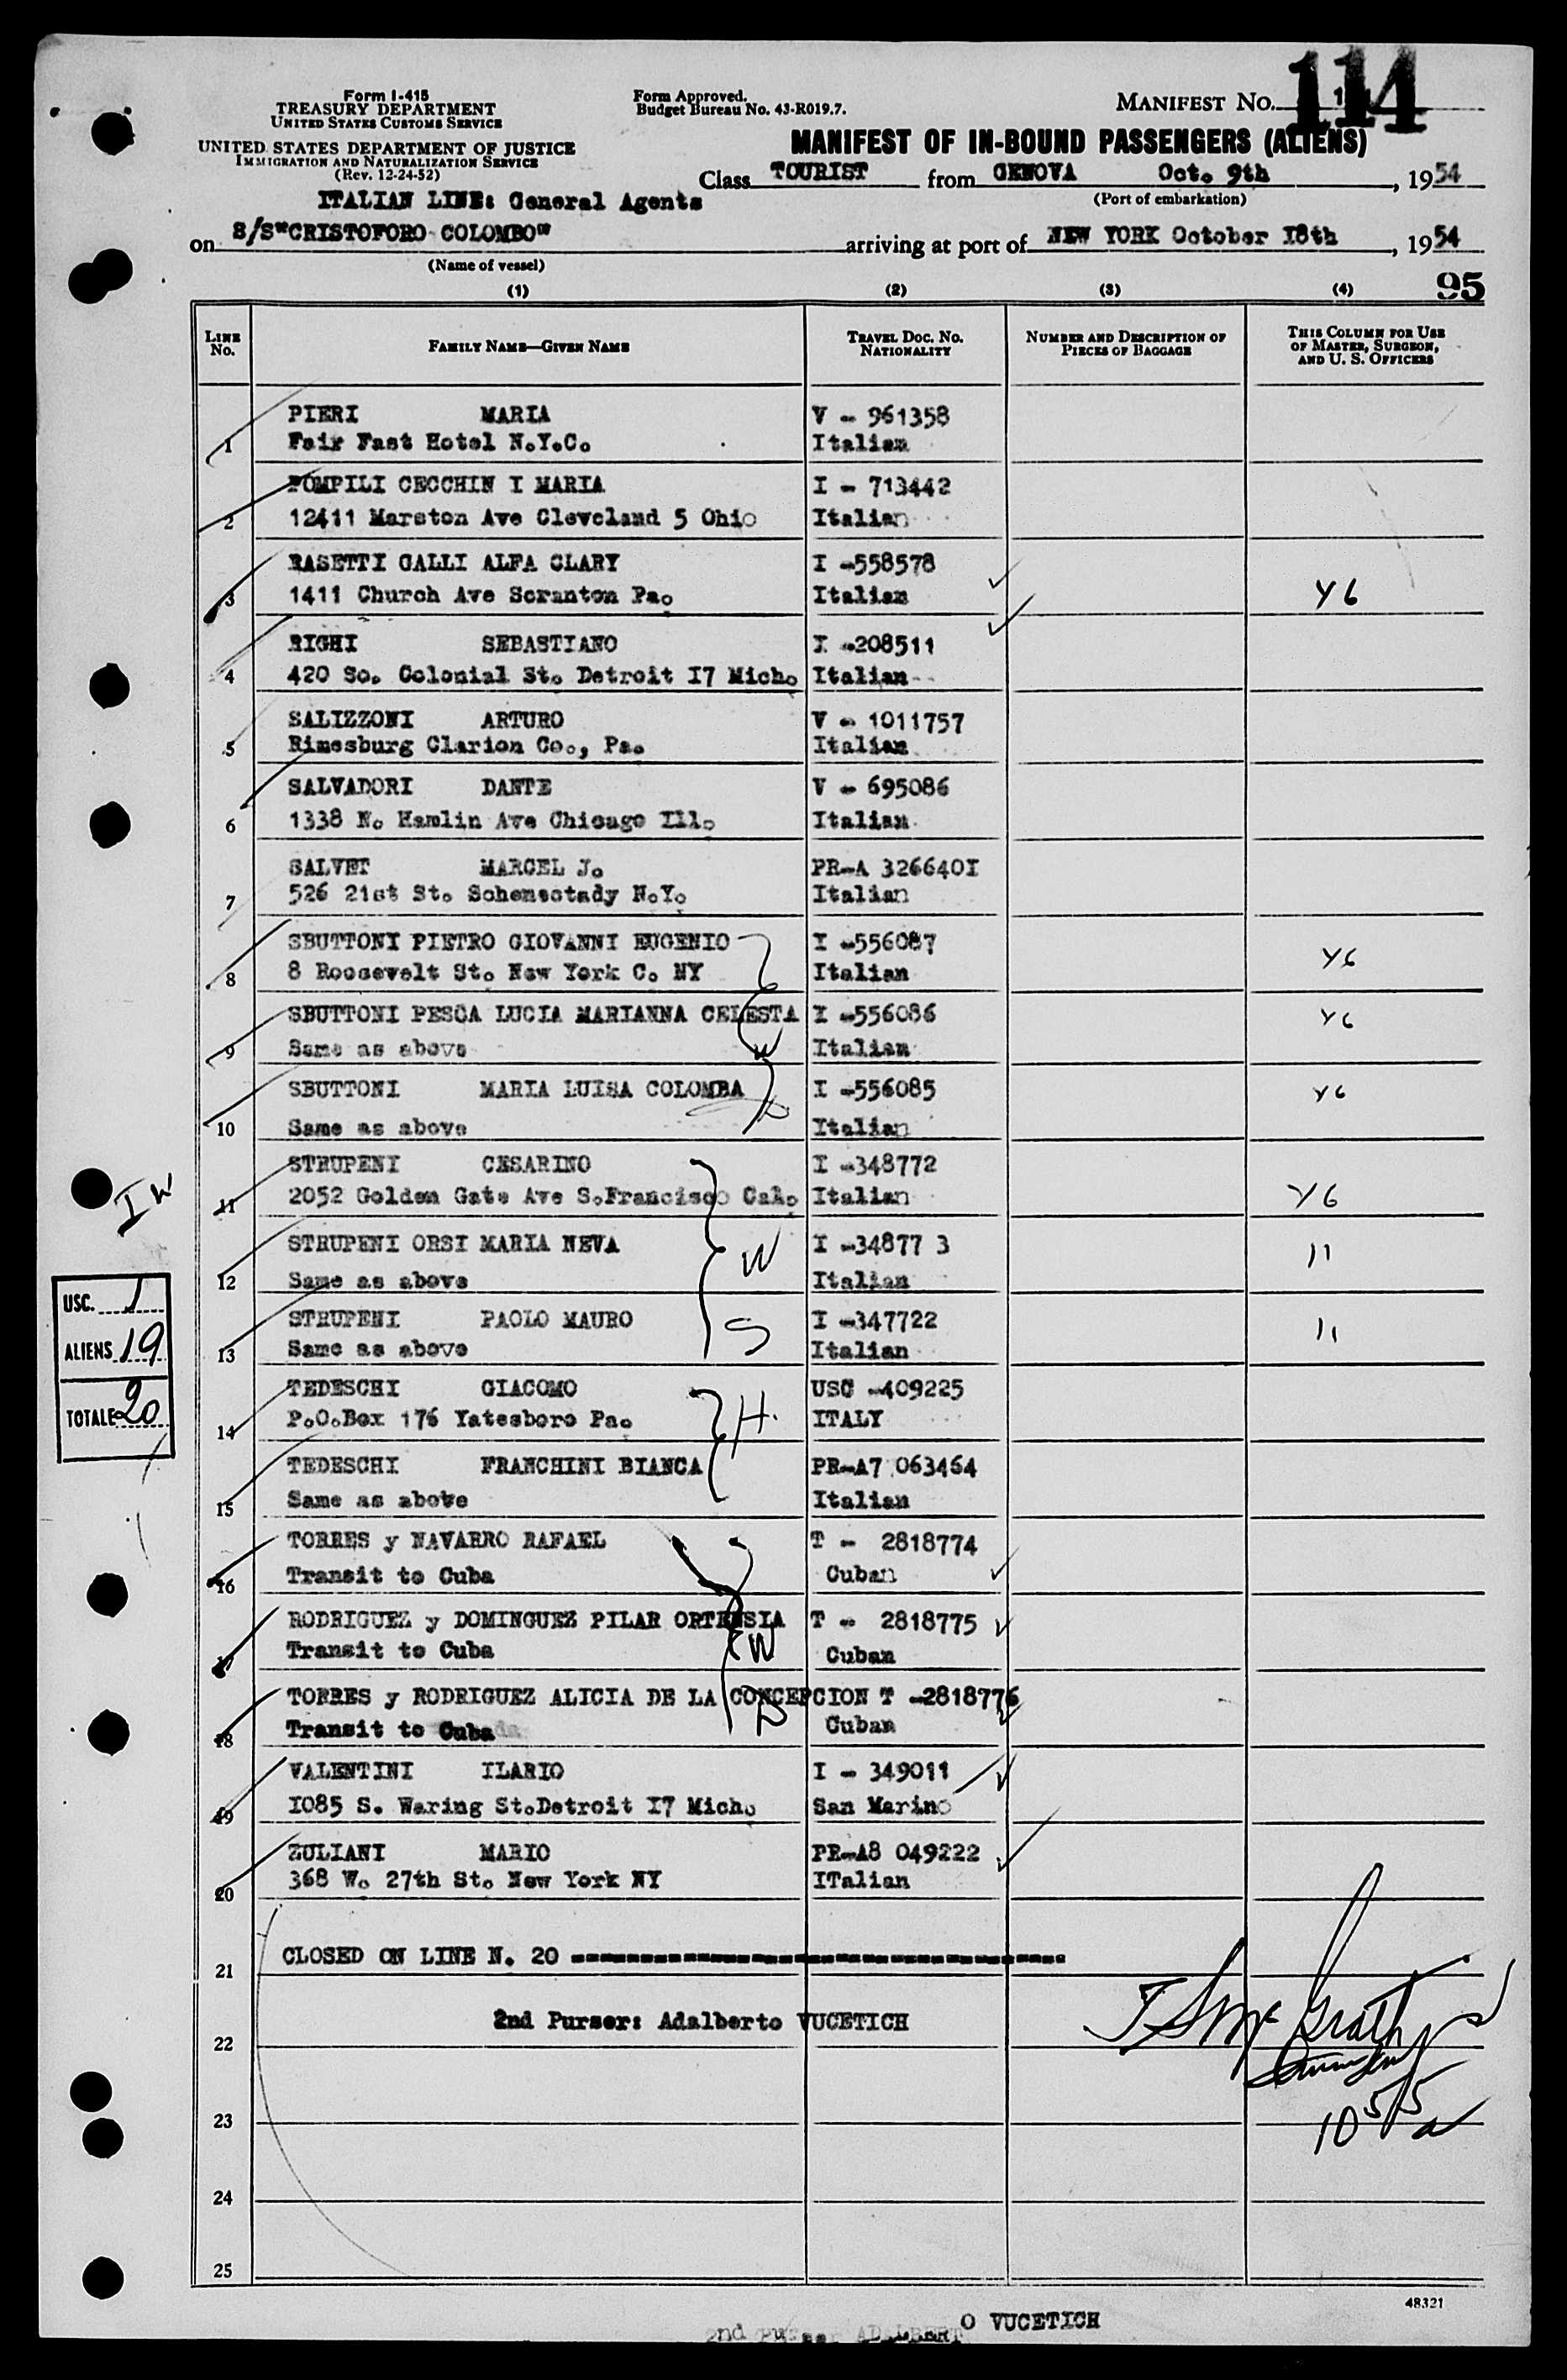 Form I-415
TREASURY DEPARTMENT
UNITED STATES CUSTOMS SERVICE
UNITED STATES DEPARTMENT OF JUSTICE
IMMIGRATION AND NATURALIZATION SERVICE
(Rev. 12-24-52)
Form Approved.
Budget Bureau No. 43-R019.7.
MANIFEST No. 114
MANIFEST OF IN-BOUND PASSENGERS (ALIENS)
Class TOURIST from GENOVA Oct. 9th, 1954
(Port of embarkation)
ITALIAN LINE: General Agents
on S/S"CRISTOFORO COLOMBO" arriving at port of NEW YORK October I8th, 1954
(Name of vessel)
95
(1) (2) (3) (4)
LINE No. FAMILY NAME—GIVEN NAME TRAVEL DOC. No. NATIONALITY NUMBER AND DESCRIPTION OF PIECES OF BAGGAGE THIS COLUMN FOR USE OF MASTER, SURGEON, AND U. S. OFFICERS
PIERI MARIA V - 961358
1 Fair Fast Hotel N.Y.C. Italian
POMPILI CECCHIN I MARIA I - 713442
2 12411 Marston Ave Cleveland 5 Ohio Italian
RASETTI GALLI ALFA CLARY I -558578
3 1411 Church Ave Scranton Pa. Italian Y6
RIGHI SEBASTIANO I -208511
4 420 So. Colonial St. Detroit I7 Mich. Italian
SALIZZONI ARTURO V - 1011757
5 Rimesburg Clarion Co., Pa. Italian
SALVADORI DANTE V - 695086
6 1338 N. Hamlin Ave Chicago Ill. Italian
SALVET MARCEL J. PR-A 326640I
7 526 21st St. Schenectady N.Y. Italian
SBUTTONI PIETRO GIOVANNI EUGENIO I -556087
8 8 Roosevelt St. New York C. NY Italian Y6
SBUTTONI PESCA LUCIA MARIANNA CELESTA I -556086
9 Same as above W Italian Y6
SBUTTONI MARIA LUISA COLOMBA I -556085
10 Same as above D Italian Y6
STRUPENI CESARINO I -348772
11 2052 Golden Gate Ave S.Francisco Cal. Italian Y6
STRUPENI ORSI MARIA NEVA I -34877 3
12 Same as above W Italian 11
STRUPENI PAOLO MAURO I -347722
13 Same as above S Italian 11
TEDESCHI GIACOMO USC -409225
14 P.O.Box 176 Yatesboro Pa. H. ITALY
TEDESCHI FRANCHINI BIANCA PR-A7 063464
15 Same as above Italian
TORRES y NAVARRO RAFAEL T - 2818774
16 Transit to Cuba Cuban
RODRIGUEZ y DOMINGUEZ PILAR ORTENSIA T - 2818775
17 Transit to Cuba W Cuban
TORRES y RODRIGUEZ ALICIA DE LA CONCEPCION T -2818776
18 Transit to Cuba D Cuban
VALENTINI ILARIO I - 349011
19 I085 S. Waring St.Detroit I7 Mich. San Marino
ZULIANI MARIO PR-A8 049222
20 368 W. 27th St. New York NY ITalian
Iw
USC. 1
ALIENS 19
TOTALE 20
21 CLOSED ON LINE N. 20
22 2nd Purser: Adalberto VUCETICH
McGrath
10 55 a
23
24
25
48321
2nd Purser ADALBERT O VUCETICH